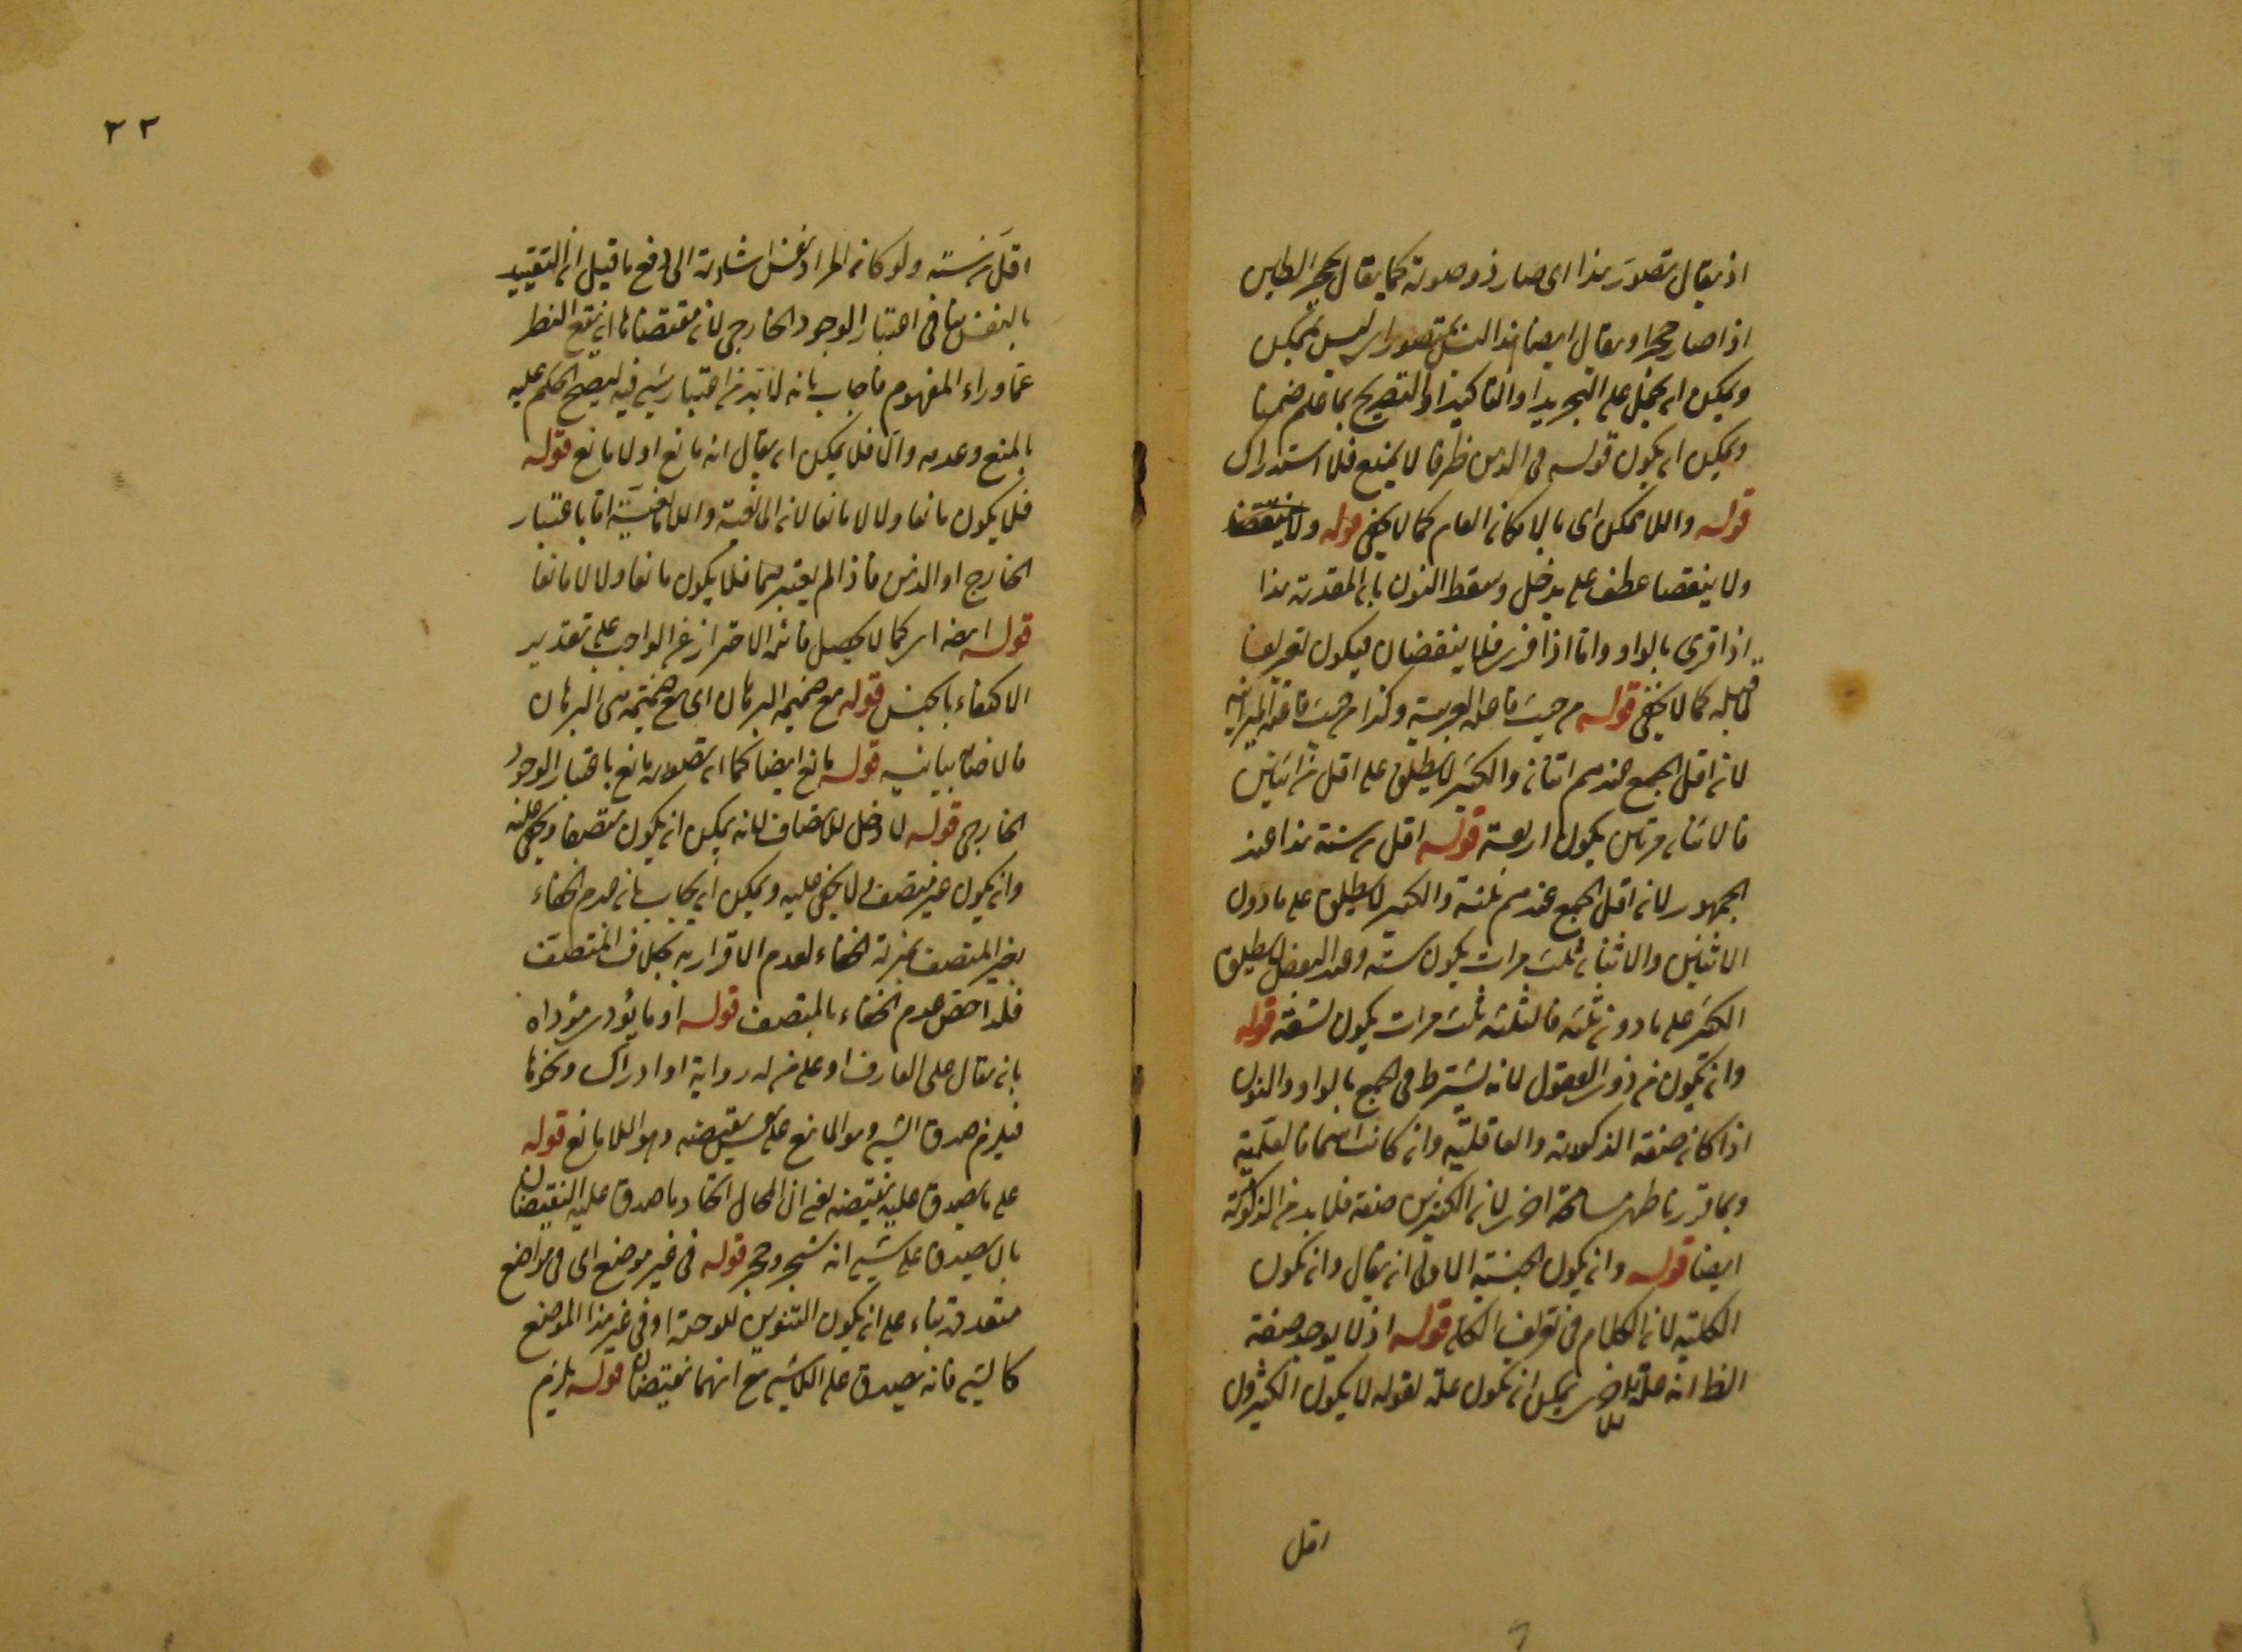 اذ يقال تصور هذا اى صار ذو صورة كما يقال تحجر الطين
اذا صار حجرا ويقال ايضا هذا الشى تصور اى ليس بممكن
ويمكن ان يحمل على التجريد او التاكيد او التصريح بما علم ضمنا
ويمكن ان يكون قوله فى الذهن ظرفا لا يمنع فلا استدراك
قوله واللا ممكن اى بالامكان العام كما لا يخفى قوله ولا ينتقضا
ولا ينتقضا عطف على يدخل وسقط النون بان المقدرة هذا
اذا قرئ بالواو واما اذا قرئ فلا ينتقضان فيكون تفريعا
قبله كما لا يخفى قوله من حيث قاعدة العربية وكذا من حيث قاعدة الميزانية
لان اقل الجمع عندهم اثنان والكثير لا يطلق على اقل من اثنين
فالاثنان مرتين يكون اربعة قوله اقل من ستة هذا عند
الجمهور لان اقل الجمع عندهم ثلثة والكثير لا يطلق على ما دون
الاثنين والاثنان ثلث مرات يكون ستة وعند البعض لا يطلق
الكثير على ما دون ثلثة فالثلثة ثلث مرات يكون تسعة قوله
وان تكون من ذوى العقول لانه يشترط فى الجمع بالواو والنون
اذا كان صفة الذكورة والعاقلية وان كانت اسما فالعلمية
وبما قررنا ظهر مسامحة اخرى لان الكثيرين صفة فلا بد من الذكورة
ايضا قوله وان يكون الجنسية الاولى ان يقال وان تكون
الكلية لان الكلام فى تعريف الكلى قوله اذ لا يوجد صفة
الظ انه علة للاخير يمكن ان تكون علة لقوله لا يكون الكثيرون
اقل
٢٢
اقل من ستة ولو كان المراد نفس اشارة الى دفع ما قيل ان التقييد
بالنفس ينافى اعتبار الوجود الخارجى لان مقتضاها ان يقع النظر
عما وراء المفهوم فاجاب بانه لا بد من اعتبار شىء فيه ليصح الحكم عليه
بالمنع وعدمه والا فلا يمكن ان يقال انه مانع او لا مانع قوله
فلا يكون مانعا ولا لا مانعا لان المانعية واللامانعية اما باعتبار
الخارج او الذهن فاذا لم يعتبرهما فلا يكون مانعا ولا لا مانعا
قوله ايضا اى كما لا يحصل فائدة الاحتراز عن الواجب على تقدير
الاكتفاء بالجنس قوله مع ضميمة البرهان اى مع ضميمة هى البرهان
فالاضافة بيانية قوله مانع ايضا كما ان تصوره مانع باعتبار الوجود
الخارجى قوله لا دخل للاضاف لانه يمكن ان يكون متصفا ويخفى عليه
وان يكون غير متصف ولا يخفى عليه ويمكن ان يجاب بان عدم الخفاء
بغير المتصف بمنزلة الخفاء لعدم الاقرار به بخلاف المتصف
فلذا خص عدم الخفاء بالمتصف قوله او ما يؤدى مؤداه
بان يقال على العارف او على من له رواية او ادراك ونحوها
فيلزم صدق الشىء وهو المانع على نقيضه وهو اللا مانع قوله
على ما يصدق عليه نقيضه يعنى ان المحال اتحاد ما صدق عليه النقيضان
بان يصدق على شىء انه شجر وحجر قوله فى غير موضع اى فى مواضع
متعددة بناء على ان يكون التنوين للوحدة او فى غير هذا الموضع
كالشىء فانه يصدق على اللاشىء مع انهما نقيضان قوله يلزم